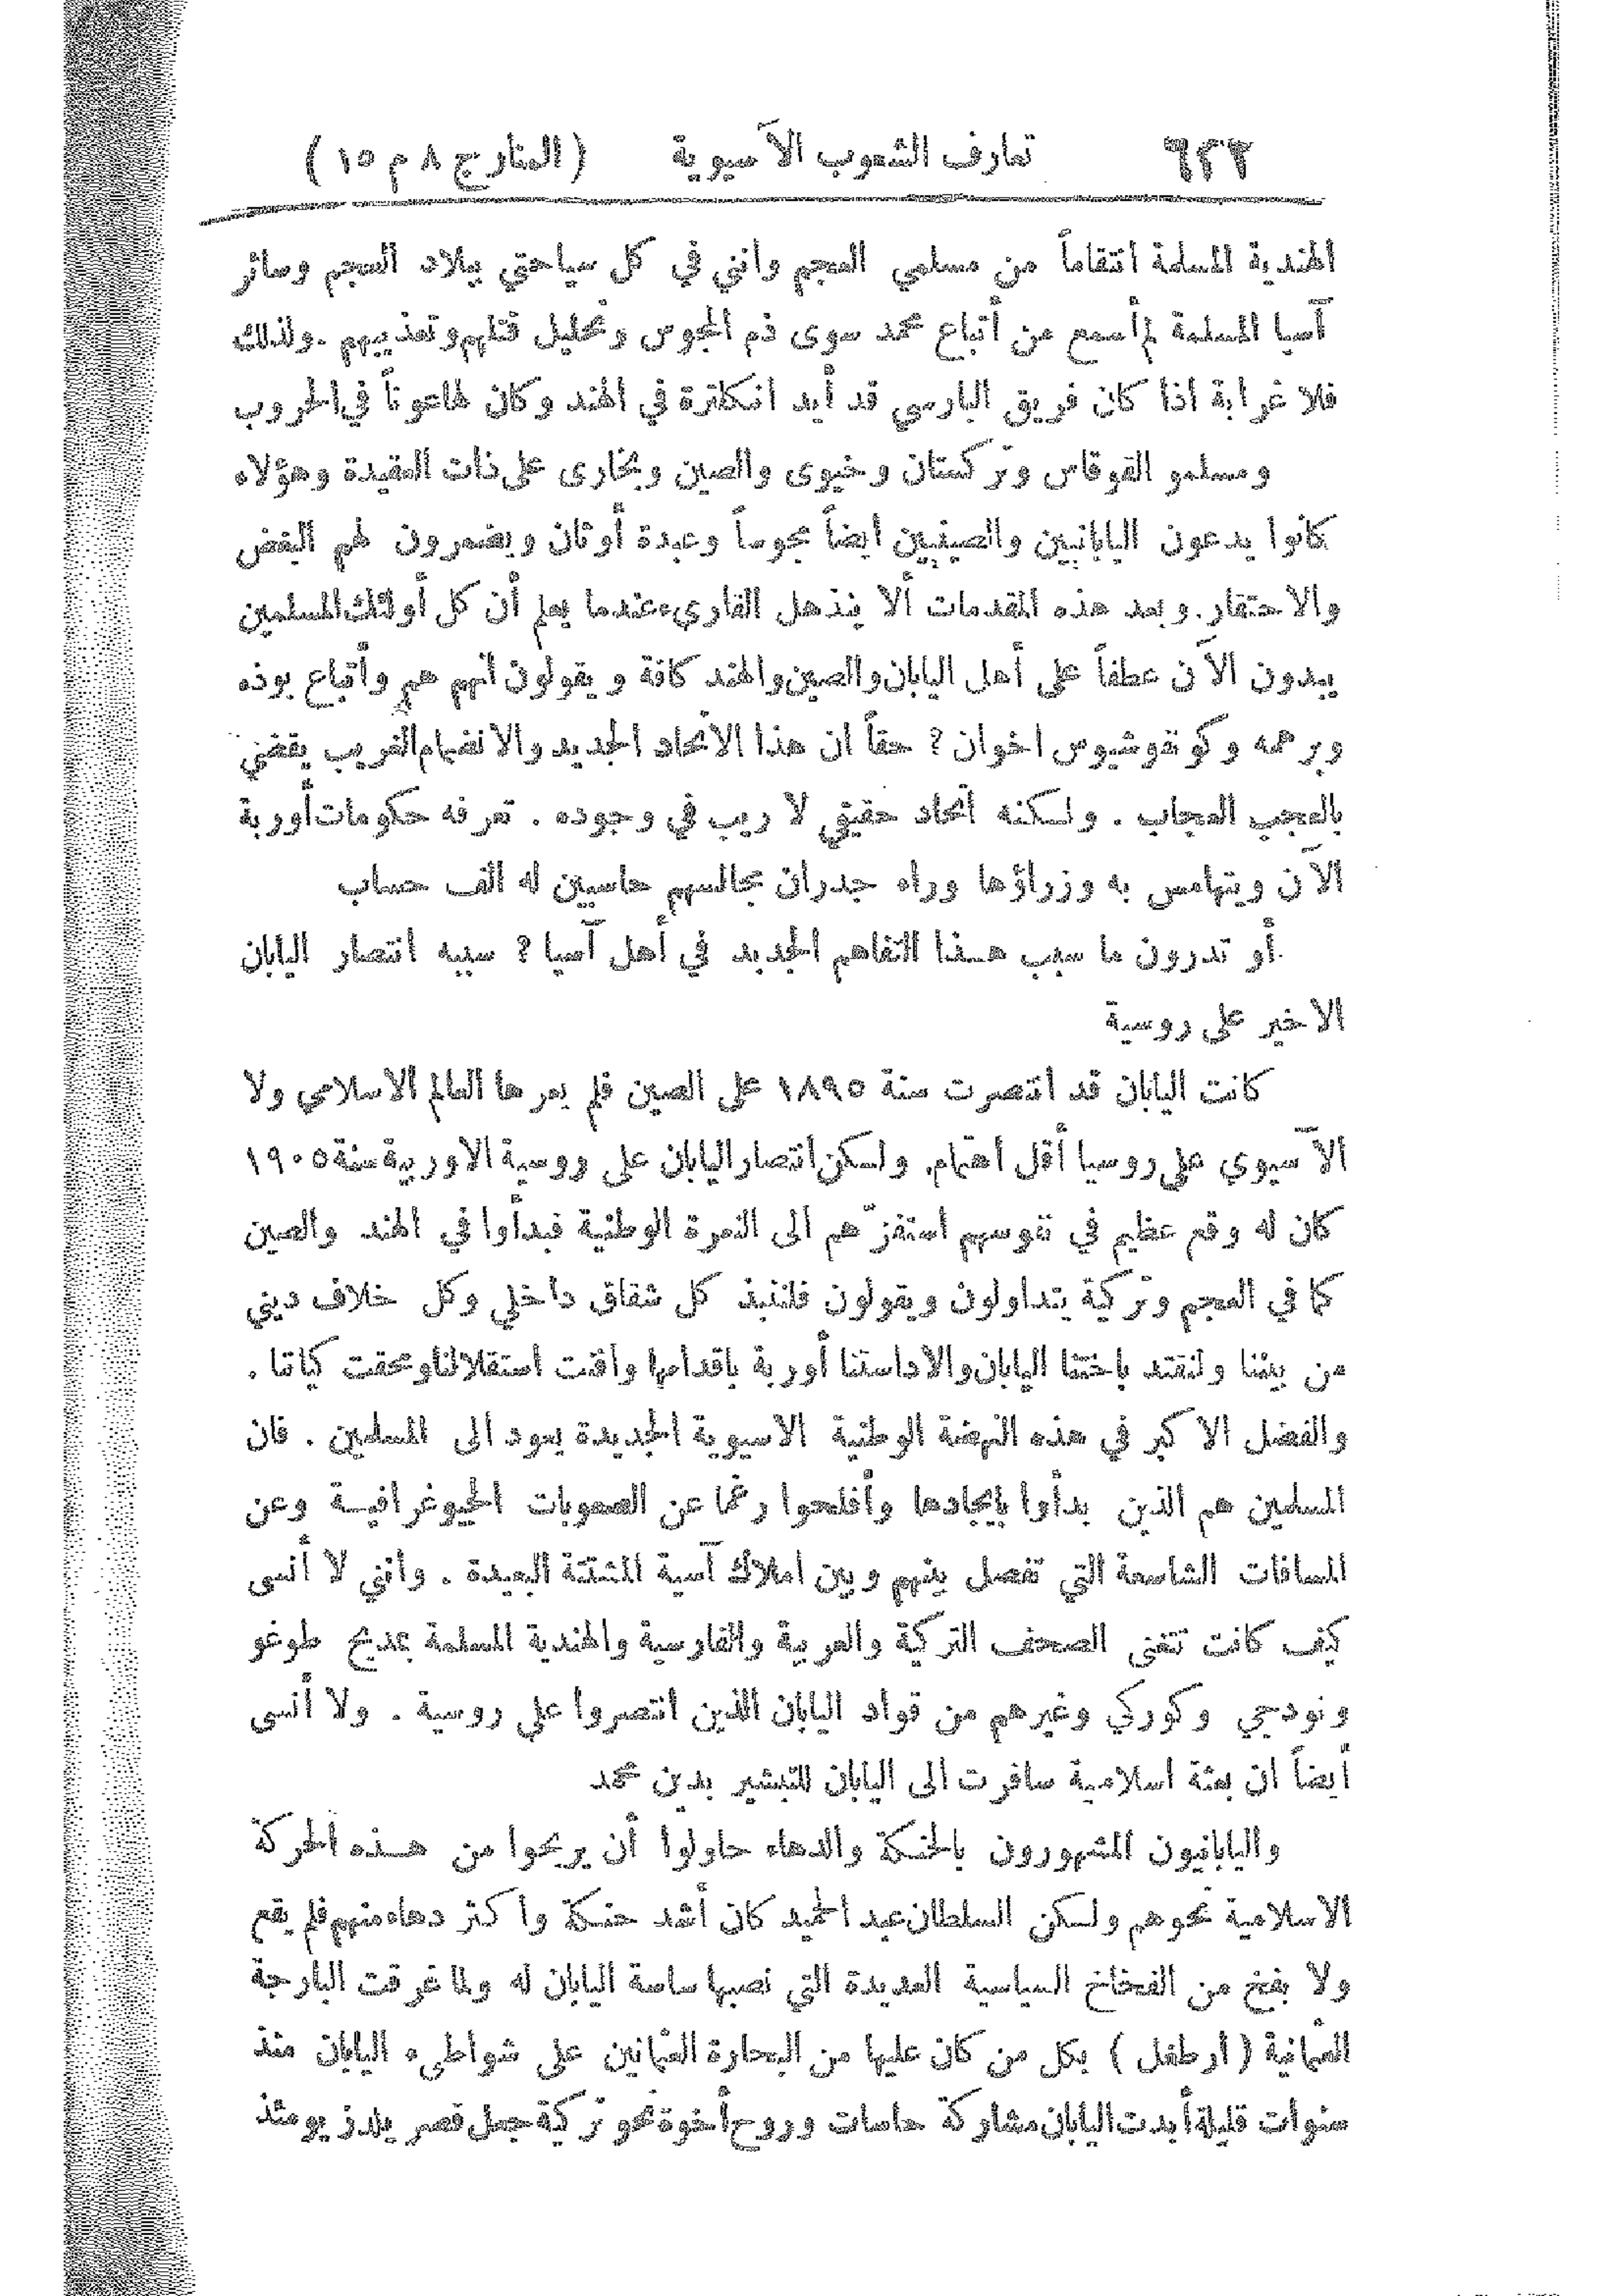 ٦٢٢ تعارف الشعوب الآسيوية (المنار ج ٨ م ١٥)
الهندية المسلمة انتقاماً من مسلمي العجم وانني في كل سياحتي ببلاد العجم وسائر
آسيا المسلمة لم أسمع من أتباع محمد سوى ذم المجوس وتحليل قتلهم وتعذيبهم. ولذلك
فلا غرابة اذا كان فريق البارسي قد أيد انكلترة في الهند وكان لها عوناً في الحروب
ومسلمو القوقاس وتركستان وخيوى والصين وبخارى على ذات العقيدة وهؤلاء
كانوا يدعون اليابانيين والصينيين أيضاً مجوساً وعبدة أوثان ويضمرون لهم البغض
والاحتقار. وبعد هذه المقدمات ألا ينذهل القارىء عندما يعلم أن كل أولئك المسلمين
يبدون الآن عطفاً على أهل اليابان والصين والهند كافة ويقولون انهم هم وأتباع بوذه
وبرهمه وكونفوشيوس اخوان ? حقاً ان هذا الاتحاد الجديد والانضمام الغريب يقضي
بالعجب العجاب . ولكنه اتحاد حقيقي لا ريب في وجوده . تعرفه حكومات أوربة
الآن ويتهامس به وزراؤها وراء جدران مجالسهم حاسبين له الف حساب
أو تدرون ما سبب هذا التفاهم الجديد في أهل آسيا ? سببه انتصار اليابان
الاخير على روسية
كانت اليابان قد انتصرت سنة ١٨٩٥ على الصين فلم يعرها العالم الاسلامي ولا
الآسيوي على روسيا أقل اهتمام. ولكن انتصار اليابان على روسية الاوربية سنة ١٩٠٥
كان له وقع عظيم في نفوسهم استفزّهم الى النعرة الوطنية فبدأوا في الهند والصين
كما في العجم وتركية يتداولون ويقولون فلننبذ كل شقاق داخلي وكل خلاف ديني
من بيننا ولنقتد باختنا اليابان والا داستنا أوربة باقدامها وافنت استقلالنا ومحقت كياننا .
والفضل الاكبر في هذه النهضة الوطنية الاسيوية الجديدة يعود الى المسلمين . فان
المسلمين هم الذين بدأوا بايجادها وأفلحوا رغما عن الصعوبات الجيوغرافية وعن
المسافات الشاسعة التي تفصل بينهم وبين املاك آسية المشتتة البعيدة . وانني لا أنسى
كيف كانت تتغنى الصحف التركية والعربية والفارسية والهندية المسلمة بمديح طوغو
ونودجي وكوركي وغيرهم من قواد اليابان الذين انتصروا على روسية . ولا أنسى
أيضاً ان بعثة اسلامية سافرت الى اليابان للتبشير بدين محمد
واليابانيون المشهورون بالحنكة والدهاء حاولوا أن يربحوا من هذه الحركة
الاسلامية نحوهم ولكن السلطان عبد الحميد كان أشد حنكة واكثر دهاء منهم فلم يقع
ولا بفخ من الفخاخ السياسية العديدة التي نصبها ساسة اليابان له ولما غرقت البارجة
العثمانية (ارطغل) بكل من كان عليها من البحارة العثمانين على شواطىء اليابان منذ
سنوات قليلة أبدت اليابان مشاركة حاسات وروح أخوة نحو تركية جعل قصر يلدز يومئذ